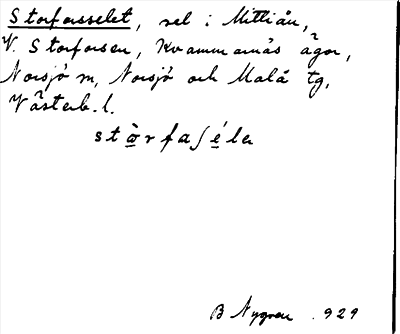 Storforsselet, sel i Mittiån,
V. Storforsen, Kvammarnäs ägor,
Norsjö sn, Norsjö och Malå tg,
Västerb. l.
stὼrfaʃéla
B Nygren . 929